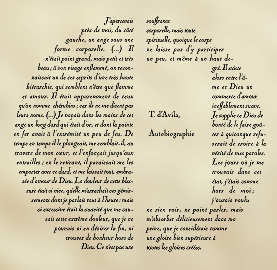 J'apercevais
près de moi, du côté
gauche, un ange sous une
forme corporelle. (...) Il
n'était point grand, mais petit et très
beau; à son visage enflammé, on recon-
naissait un de ces esprits d'une très haute
hiérarchie, qui semblent n'être que flamme
et amour. Il était apparemment de ceux
qu'on nomme chérubins; car ils ne me disent pas
leurs noms. (...) Je voyais dans les mains de cet
ange un long dard qui était d'or, et dont la pointe
en fer avait à l'extrémité un peu de feu. De
temps en temps il le plongeait, me semblait-il, au
travers de mon cœur, et l'enfonçait jusqu'aux
entrailles; en le retirant, il paraissait me les
emporter avec ce dard, et me laissait tout embra-
sée d'amour de Dieu. La douleur de cette bles-
sure était si vive, qu'elle m'arrachait ces gémis-
sements dont je parlais tout à l'heure: mais
si excessive était la suavité que me cau-
sait cette extrême douleur, que je ne
pouvais ni en désirer la fin, ni
trouver de bonheur hors de
Dieu. Ce n'est pas une
souffrance
corporelle, mais toute
spirituelle, quoique le corps
ne laisse pas d'y participer
un peu, et même à un haut de-
gré. Il existe
alors entre l'â-
me et Dieu un
commerce d'amour
ineffablement suave.
Je supplie ce Dieu de
bonté de le faire goû-
ter à quiconque refu-
serait de croire à la
vérité de mes paroles.
Les jours où je me
trouvais dans cet
état, j'étais comme
hors de moi;
j'aurais voulu
ne rien voir, ne point parler, mais
m'absorber délicieusement dans ma
peine, que je considérais comme
une gloire bien supérieure à
toutes les gloires créées.
T. d'Avila,
Autobiographie